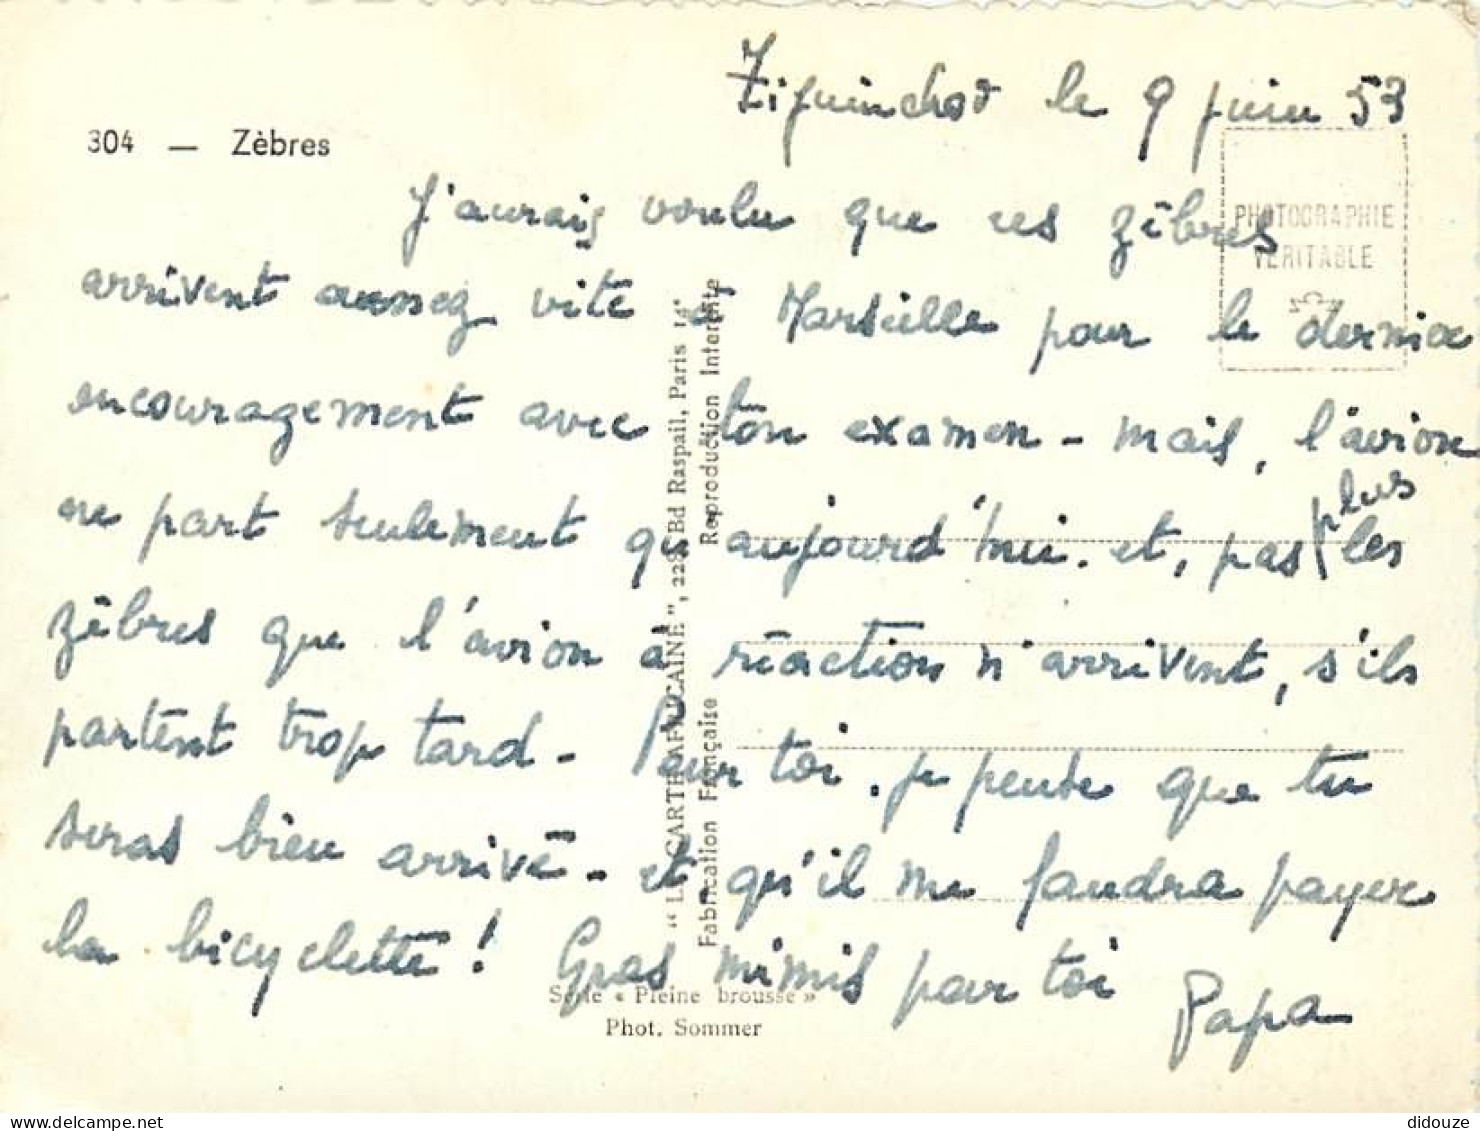 Ziguinchor le 9 juin 53
304 — Zèbres
PHOTOGRAPHIE
VERITABLE
J'aurais voulu que ces zèbres
arrivent assez vite à Marseille pour le dernier
encouragement avec ton examen - mais, l'avion
ne part seulement qu'aujourd'hui. et, pas plus les
zèbres que l'avion à réaction n'arrivent, s'ils
partent trop tard - Pour toi, je pense que tu
seras bien arrivé - et, qu'il me faudra payer
la bicyclette ! Gros mimis pour toi
Papa
" LA CARTE AFRICAINE ", 229, Bd Raspail, Paris 14°
Fabrication Française Reproduction Interdite
Série « Pleine brousse »
Phot. Sommer
delcampe.net
didouze